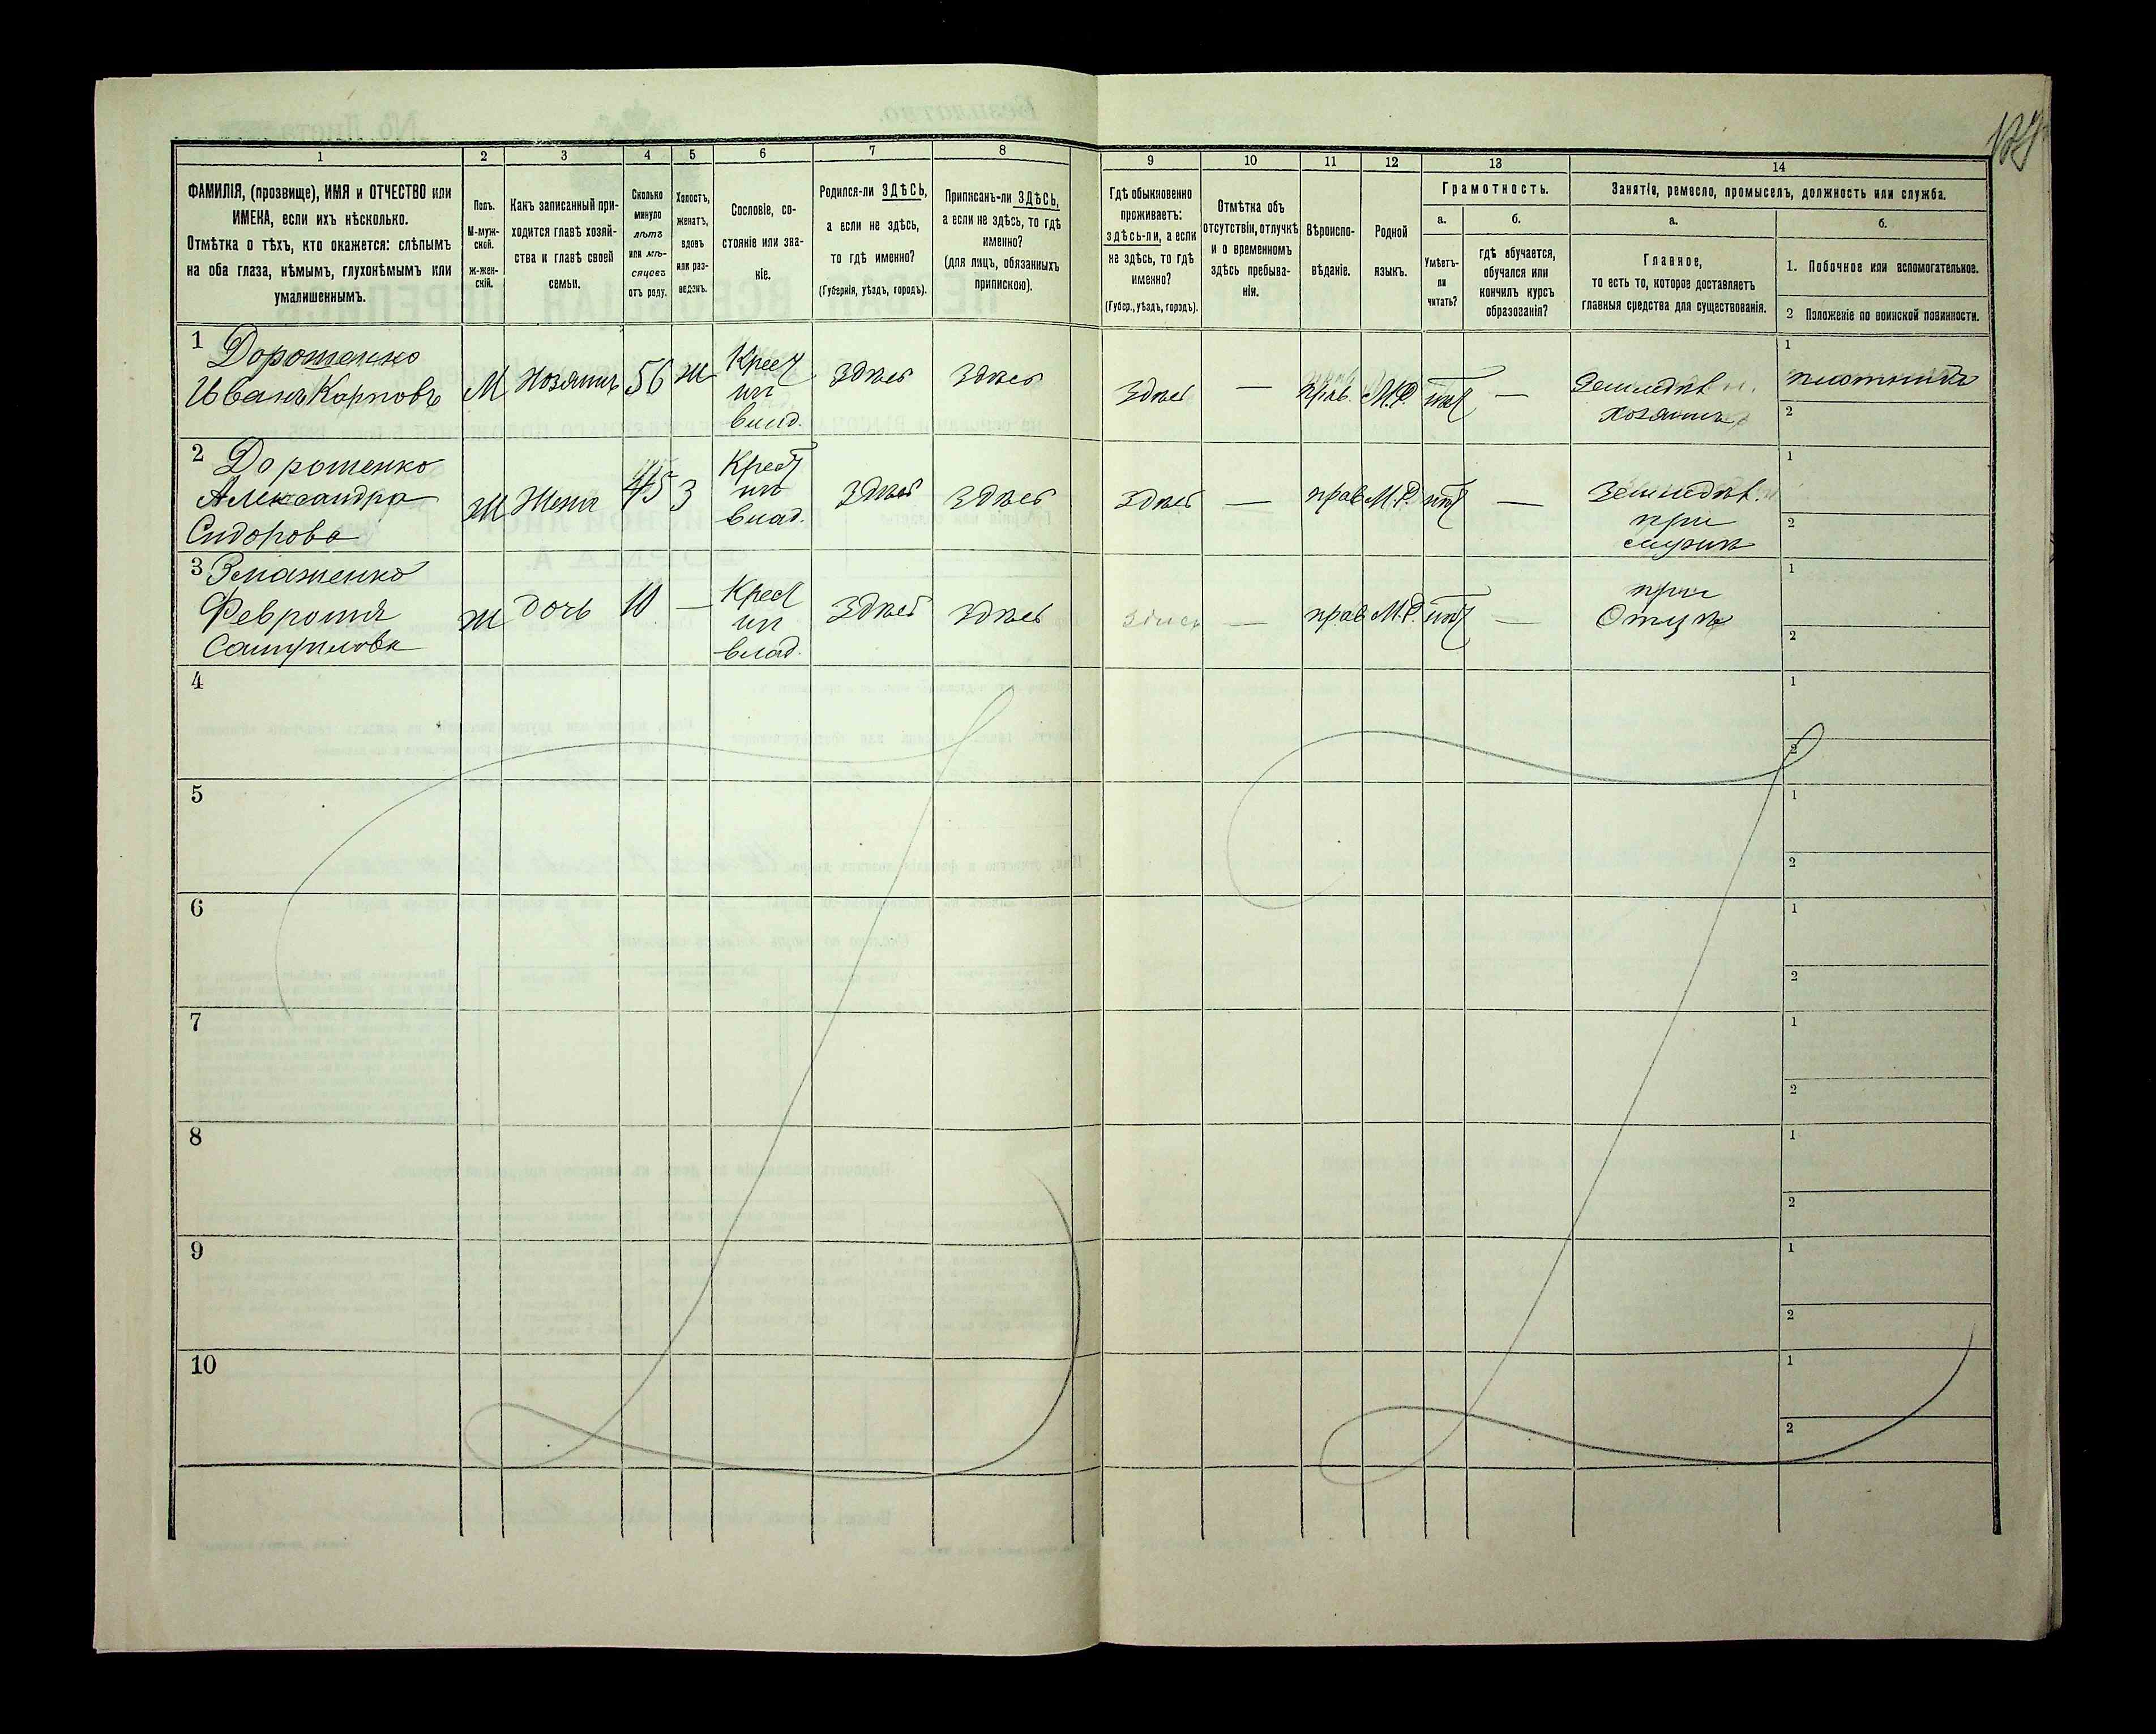 1
2
3
4
5
6
7
8
ФАМИЛІЯ, (прозвище), ИМЯ и ОТЧЕСТВО или
ИМЕНА, если ихъ нѣсколько.
Отмѣтка о тѣхъ, кто окажется: слѣпымъ
на оба глаза, нѣмымъ, глухонѣмымъ или
умалишеннымъ.
Полъ.
М-муж-
ской.
ж-жен-
скій.
Какъ записанный при-
ходится главѣ хозяй-
ства и главѣ своей
семьи.
Сколько
минуло
лѣтъ
или мѣ-
сяцевъ
отъ роду.
Холостъ,
женатъ,
вдовъ
или раз-
веденъ.
Сословіе, со-
стояніе или зва-
ніе.
Родился-ли ЗДѢСЬ,
а если не здѣсь,
то гдѣ именно?
(Губернія, уѣздъ, городъ).
Приписанъ-ли ЗДѢСЬ,
а если не здѣсь, то гдѣ
именно?
(для лицъ, обязанныхъ
припискою).
9
10
11
12
13
14
Гдѣ обыкновенно
проживаетъ:
здѣсь-ли, а если
не здѣсь, то гдѣ
именно?
(Губер., уѣздъ, городъ).
Отмѣтка объ
отсутствіи, отлучкѣ
и о временномъ
здѣсь пребыва-
ніи.
Вѣроиспо-
вѣданіе.
Родной
языкъ.
Грамотность.
а.
б.
Умѣетъ-
ли
читать?
гдѣ обучается,
обучался или
кончилъ курсъ
образованія?
Занятіе, ремесло, промыселъ, должность или служба.
а.
б.
Главное,
то есть то, которое доставляетъ
главныя средства для существованія.
1. Побочное или вспомогательное.
2 Положеніе по воинской повинности.
1 Дорошенко
Иванъ Карповъ
М
Хозяинъ
56
ж
Крест
ип
влад.
Здѣсь
Здѣсь
Здѣсь
—
прав.
М.Р.
нѣт
—
Земледѣл
хозяинъ
1
плотникъ
2
2 Дорошенко
Александра
Сидорова
Ж
Жена
45
З
Крест
ип
влад.
Здѣсь
Здѣсь
Здѣсь
—
прав
М.Р.
нѣт
—
Земледѣл.
при
мужѣ
1
2
3
Феврония
ж
дочь
10
—
Крест
ип
влад.
Здѣсь
Здѣсь
здѣсь
—
прав
М.Р.
нѣт
—
при
Отцѣ
1
2
4
1
2
5
1
2
6
1
2
7
1
2
8
1
2
9
1
2
10
1
2